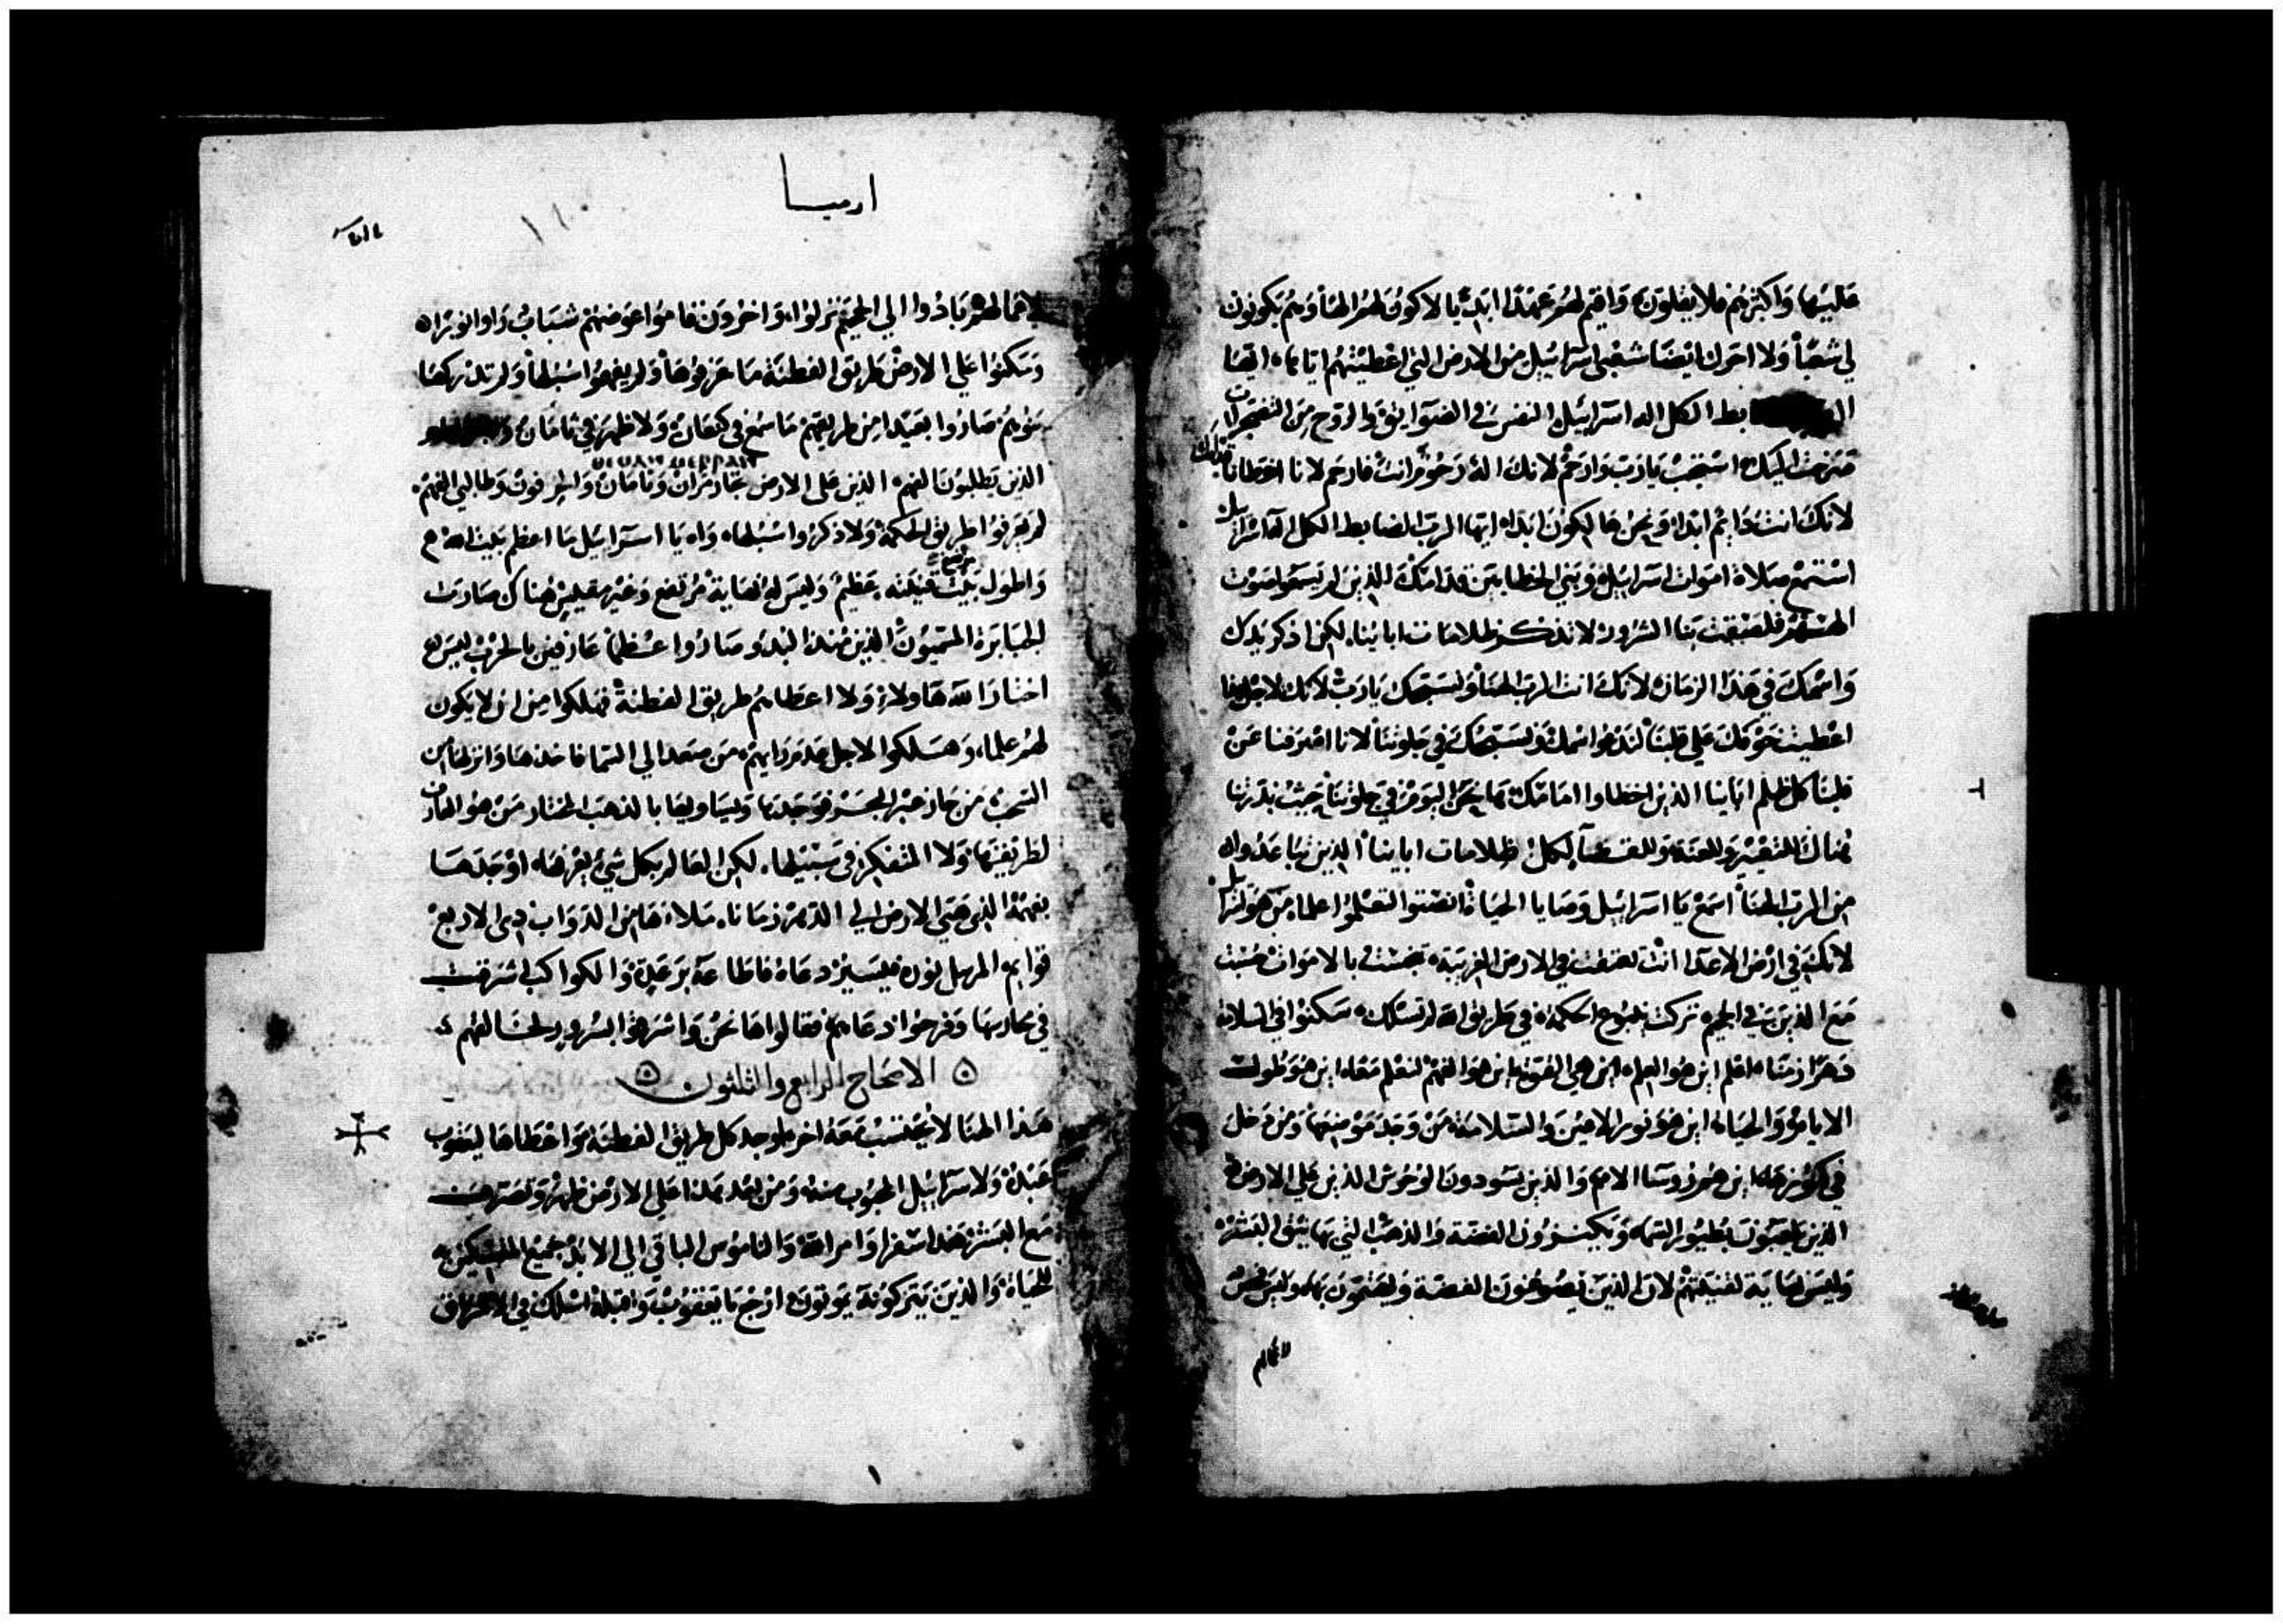 عليها واكثرهم فلا يقلون واقيم لهم عهدا ابديا لاكون لهم الها وهم يكونون
لي شعبا ولا احرك ايضا شعبي اسرايل من الارض التي اعطيتهم اياها ايها
الكل اله اسرايل النفس في الضوايق والروح من التضجرات
صرخت اليك استجب يارب وارحم لانك اله رحوم انت فارحم لانا اخطانا قدامك
لانك انت دايم ابدا ونحن هالكون ابدا ايها الرب الضابط الكل اله اسرايل
استمع صلاة اموات اسرايل وبني الخطايين قدامك الذين لم يسمعوا صوت
الههم فلصقت بنا الشرور لا تذكر ظلامات اباينا لكن اذكر يدك
واسمك في هذا الزمان لانك انت الرب الهنا ولنسبحك يارب لانك لاجل هذا
اعطيت خوفك على قلبنا لندعوا اسمك ونسبحك في جلوتنا لانا اصرفنا عن
قلبنا كل ظلم اباينا الذين اخطاوا امامك ها نحن اليوم في جلوتنا حيث بذرتنا
هناك للتعيير وللعنة وللقضا كل ظلامات اباينا الذين تباعدوا
من الرب الهنا اسمع يا اسرايل وصايا الحياة انصتوا لتعلموا علما من هو اسرايل
لانك في ارض الاعدا انت تعتقت في الارض الغريبة تنجست بالاموات حسبت
مع الذين في الجحيم تركت ينبوع الحكمة في طريق الله لو تسلك سكنوا في السلامة
دهرا زمنا اعلم اين هو العلم اين هي القوة اين هو الفهم لتعلم معا اين هو طولت
الايام والحياة اين هو نور الاعين والسلامة من وجد موضعها ومن دخل
في كنوزها اين هم روسا الامم والذين يسودون الوحوش الذين على الارض
الذين يلعبون بطيور السما ويكنزون الفضة والذهب التي بها يثق البشر
وليس نهاية لقنيتهم لان الذين يصوغون الفضة ويهتمون بها وليس فحص
لاعمالهم
ارميا
لاعمالهم بادوا الى الجحيم نزلوا واخرون قاموا عوضهم شباب راوا نورا
وسكنوا على الارض طريق الفطنة ما عرفوها ولم يفهموا سبلها ولم تدركها
بنوهم صاروا بعيدا من طريقهم ما سمع في كنعان ولا ظهر في تامان
الذين يطلبون الفهم الذين على الارض تجار مران وتامان وطالبي الفهم
لم يعرفوا طريق الحكمة ولا ذكروا سبلها واه يا اسرايل ما اعظم بيت الله
واطول بيت قنيته عظيم وليس له نهاية مرتفع وغير مقيس هناك صارت
الجبابرة المسميون الذين منذ البدو صاروا عظما عارفين بالحرب ليس
اختار الله هاولاء ولا اعطاهم طريق الفطنة فهلكوا من ان لا يكون
لهم علما وهلكوا لاجل عدم رايهم من صعد الى السما فاخذها وانزلها من
السحب من جاز عبر البحر فوجدها وياتي بها بالذهب المختار من هو العارف
لطريقتها ولا المتفكر في سبيلها لكن العالم بكل شي يعرفها اوجدها
بفهمه الذي هيى الارض الى الدهر زمانا ملاها من الدواب ذي الاربع
قوايم المرسل نوره فيسير دعاه فاطاعه برعدة والكواكب اشرقت
في محارسها وفرحوا دعاهم فقالوا ها نحن واشرقوا بسرور لخالقهم
الاصحاح الرابع والثلثون
هذا الهنا لا يحتسب معه اخر اوجد كل طريق الفطنة واعطاها ليعقوب
عبده ولاسرايل المحبوب منه ومن بعد هذا على الارض ظهر وتصرف
مع البشر هذا سفر اوامر الله والناموس الباقي الى الابد جميع المتمسكين به
للحياة والذين يتركونه يموتون ارجع يا يعقوب واقبله اسلك في الاشراق